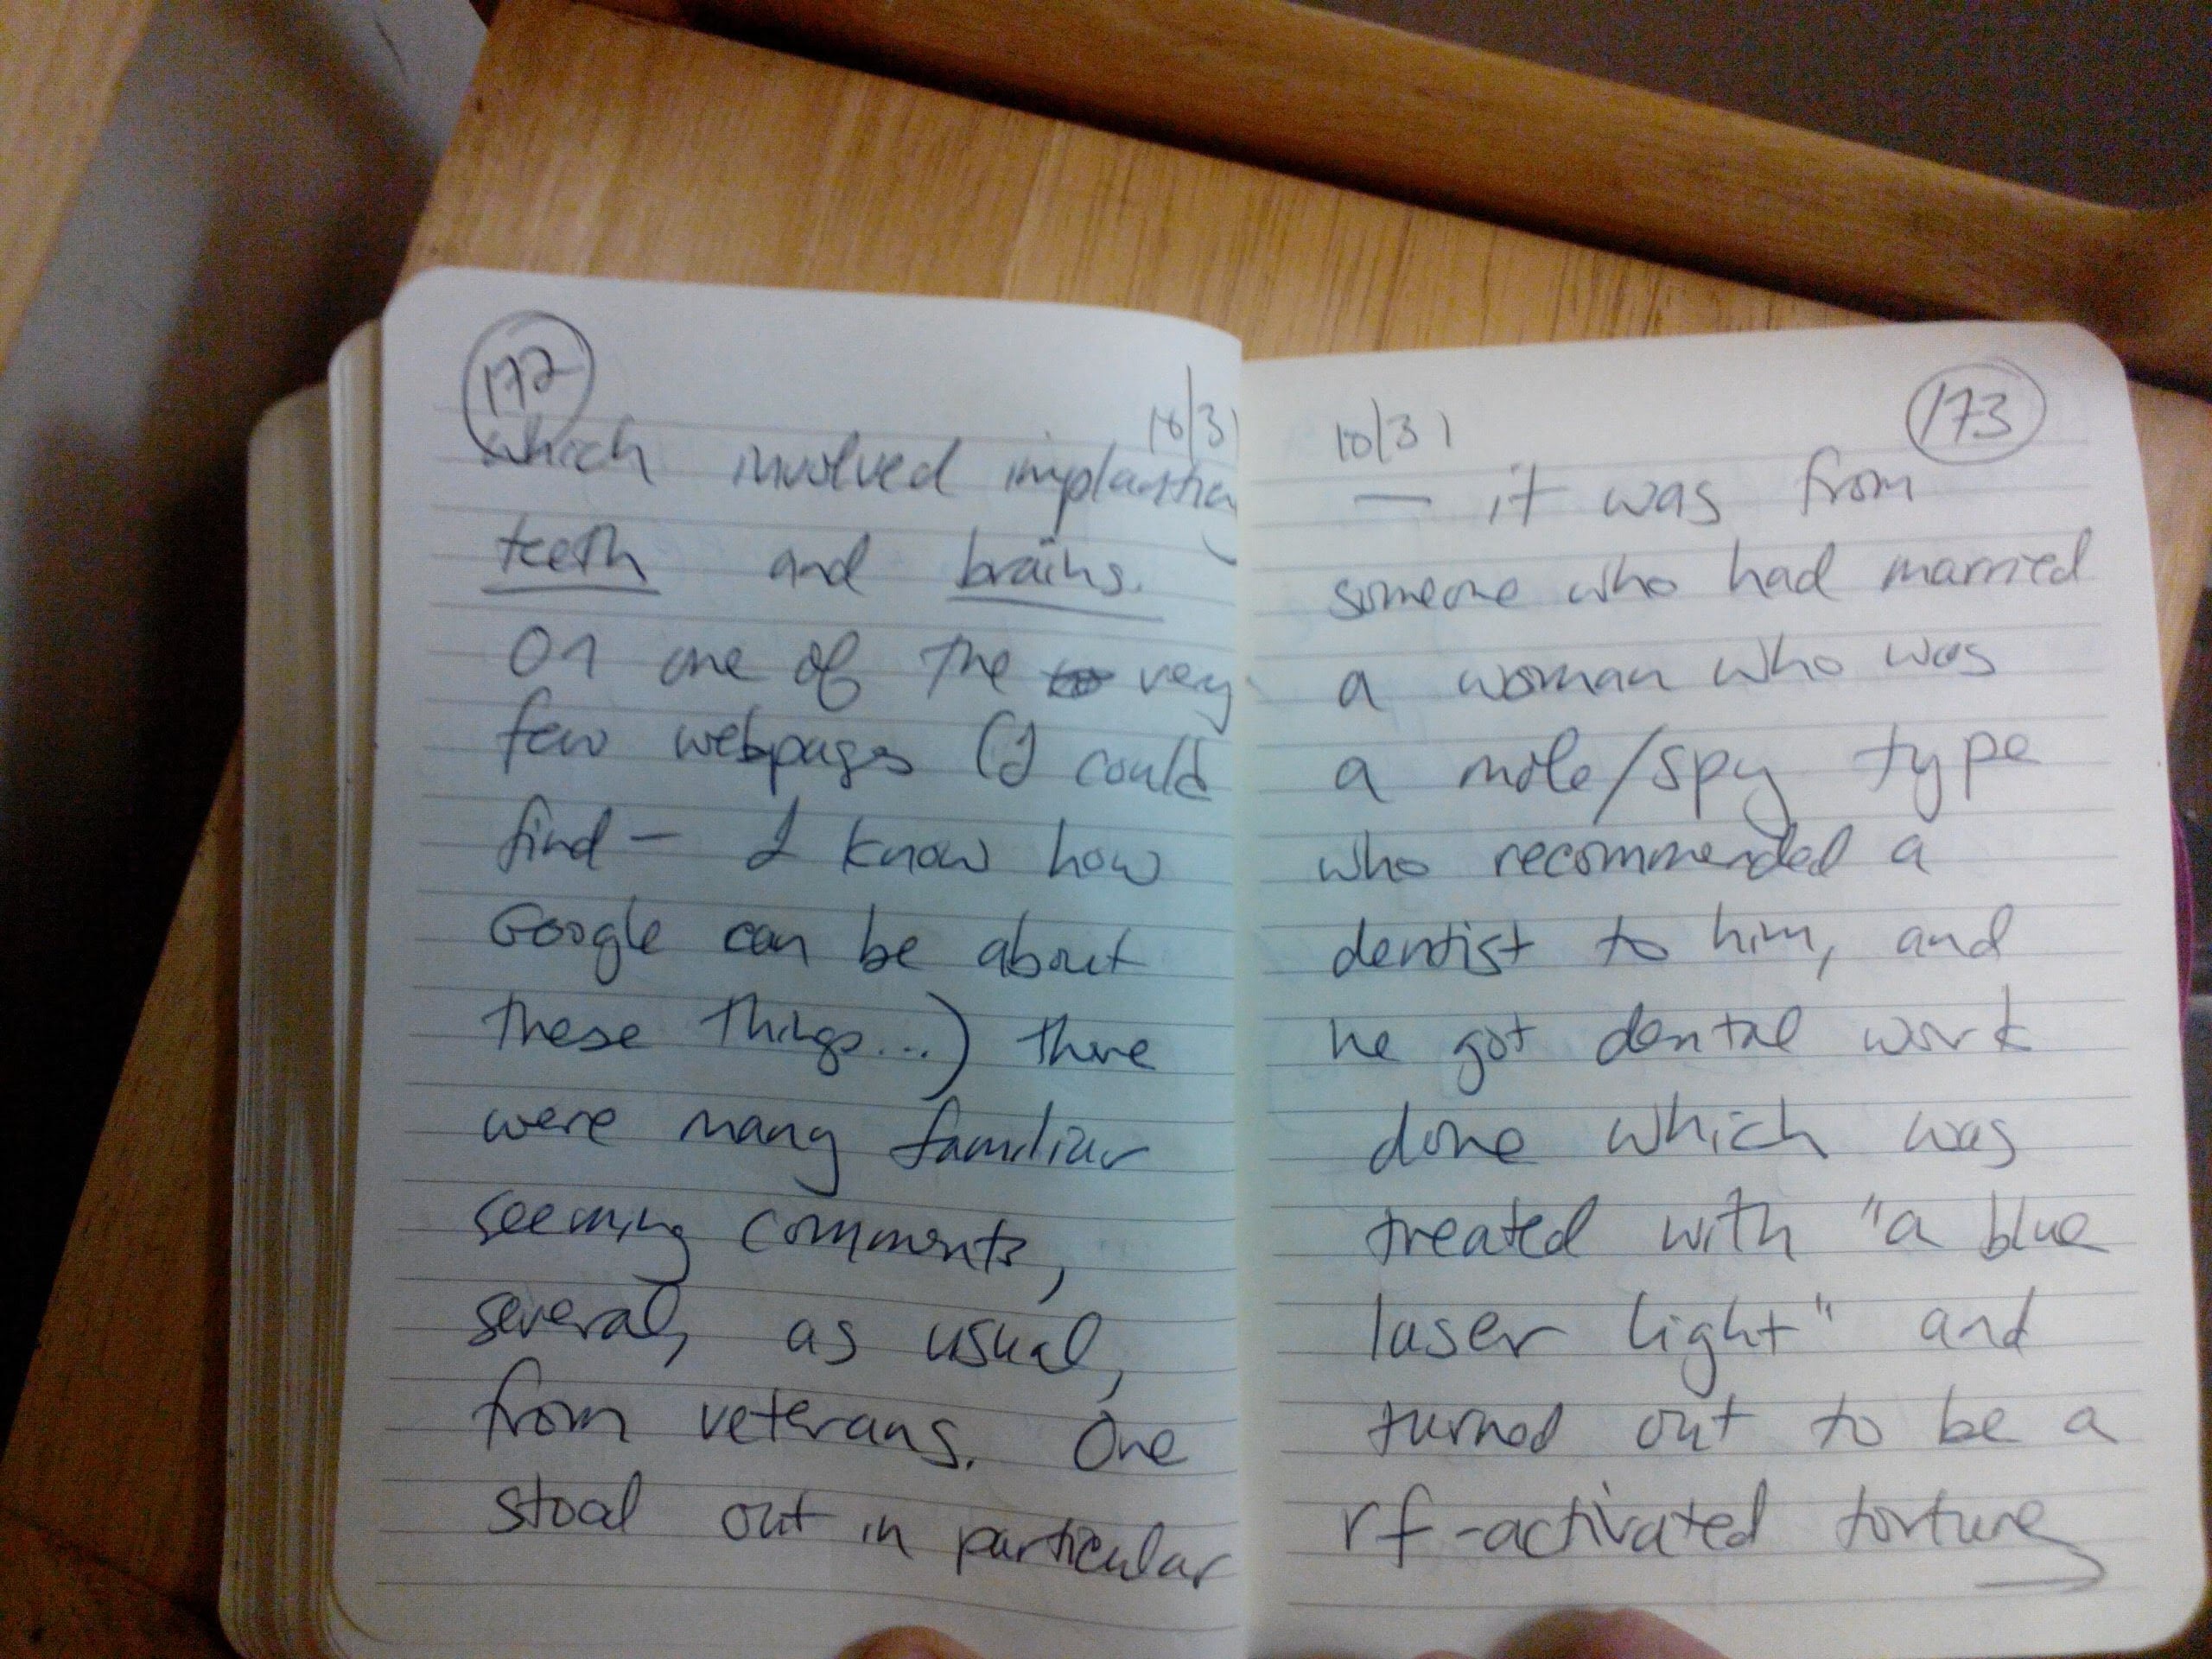 172
10/31
which involved implanting
teeth and brains.
On one of the very
few webpages (I could
find — I know how
Google can be about
these things...) there
were many familiar
seeming comments,
several, as usual,
from veterans. One
stood out in particular
173
10/31
— it was from
someone who had married
a woman who was
a mole/spy type
who recommended a
dentist to him, and
he got dental work
done which was
treated with "a blue
laser light" and
turned out to be a
rf-activated torture